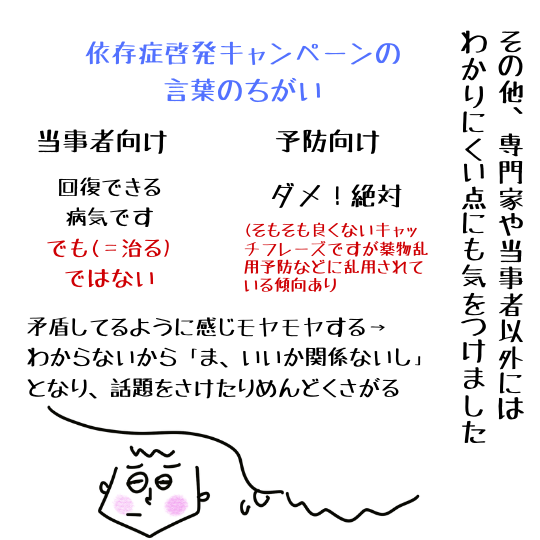 その他、専門家や当事者以外には
わかりにくい点にも気をつけました
依存症啓発キャンペーンの
言葉のちがい
当事者向け
回復できる
病気です
でも(=治る)
ではない
予防向け
ダメ!絶対
(そもそも良くないキャッ
チフレーズですが薬物乱
用予防などに乱用されて
いる傾向あり
矛盾してるように感じモヤモヤする→
わからないから「ま、いいか関係ないし」
となり、話題をさけたりめんどくさがる